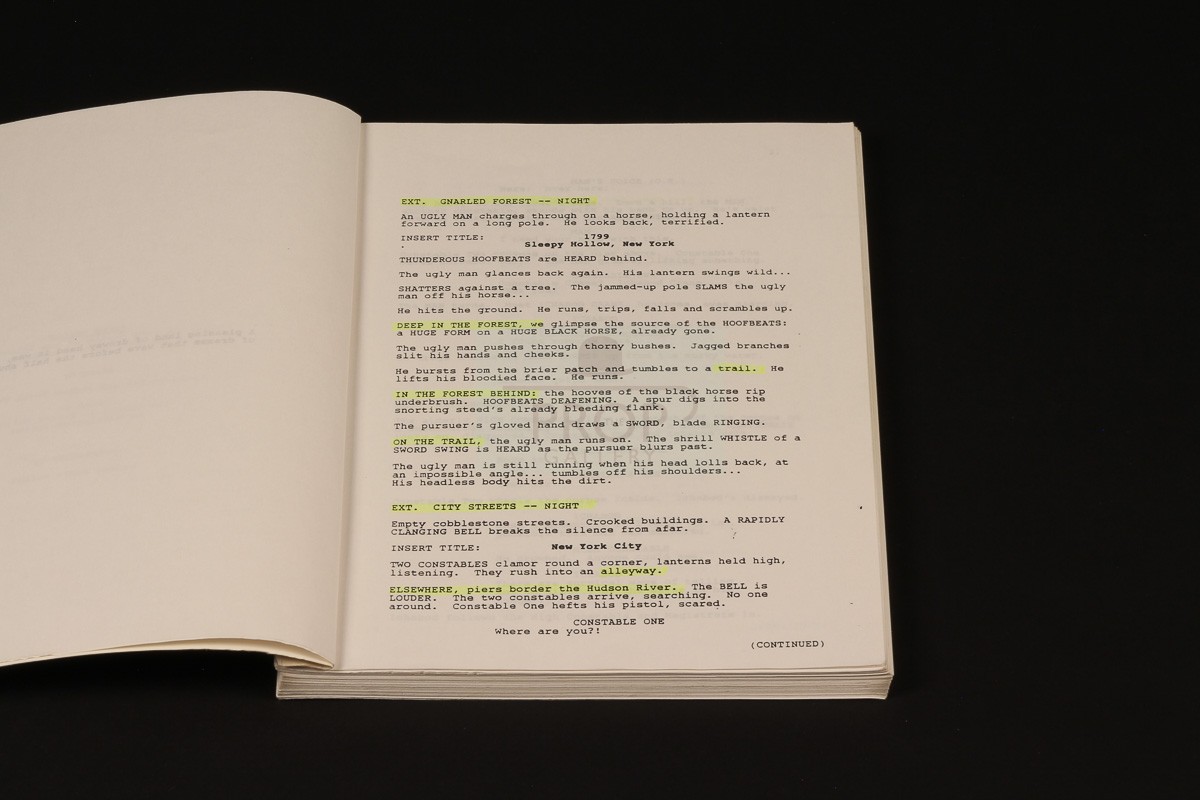 EXT. GNARLED FOREST -- NIGHT
An UGLY MAN charges through on a horse, holding a lantern
forward on a long pole. He looks back, terrified.
INSERT TITLE: 1799
Sleepy Hollow, New York
THUNDEROUS HOOFBEATS are HEARD behind.
The ugly man glances back again. His lantern swings wild...
SHATTERS against a tree. The jammed-up pole SLAMS the ugly
man off his horse...
He hits the ground. He runs, trips, falls and scrambles up.
DEEP IN THE FOREST, we glimpse the source of the HOOFBEATS:
a HUGE FORM on a HUGE BLACK HORSE, already gone.
The ugly man pushes through thorny bushes. Jagged branches
slit his hands and cheeks.
He bursts from the brier patch and tumbles to a trail. He
lifts his bloodied face. He runs.
IN THE FOREST BEHIND: the hooves of the black horse rip
underbrush. HOOFBEATS DEAFENING. A spur digs into the
snorting steed's already bleeding flank.
The pursuer's gloved hand draws a SWORD, blade RINGING.
ON THE TRAIL, the ugly man runs on. The shrill WHISTLE of a
SWORD SWING is HEARD as the pursuer blurs past.
The ugly man is still running when his head lolls back, at
an impossible angle... tumbles off his shoulders...
His headless body hits the dirt.
EXT. CITY STREETS -- NIGHT
Empty cobblestone streets. Crooked buildings. A RAPIDLY
CLANGING BELL breaks the silence from afar.
INSERT TITLE: New York City
TWO CONSTABLES clamor round a corner, lanterns held high,
listening. They rush into an alleyway.
ELSEWHERE, piers border the Hudson River. The BELL is
LOUDER. The two constables arrive, searching. No one
around. Constable One hefts his pistol, scared.
CONSTABLE ONE
Where are you?!
(CONTINUED)
PROP
GALLERY